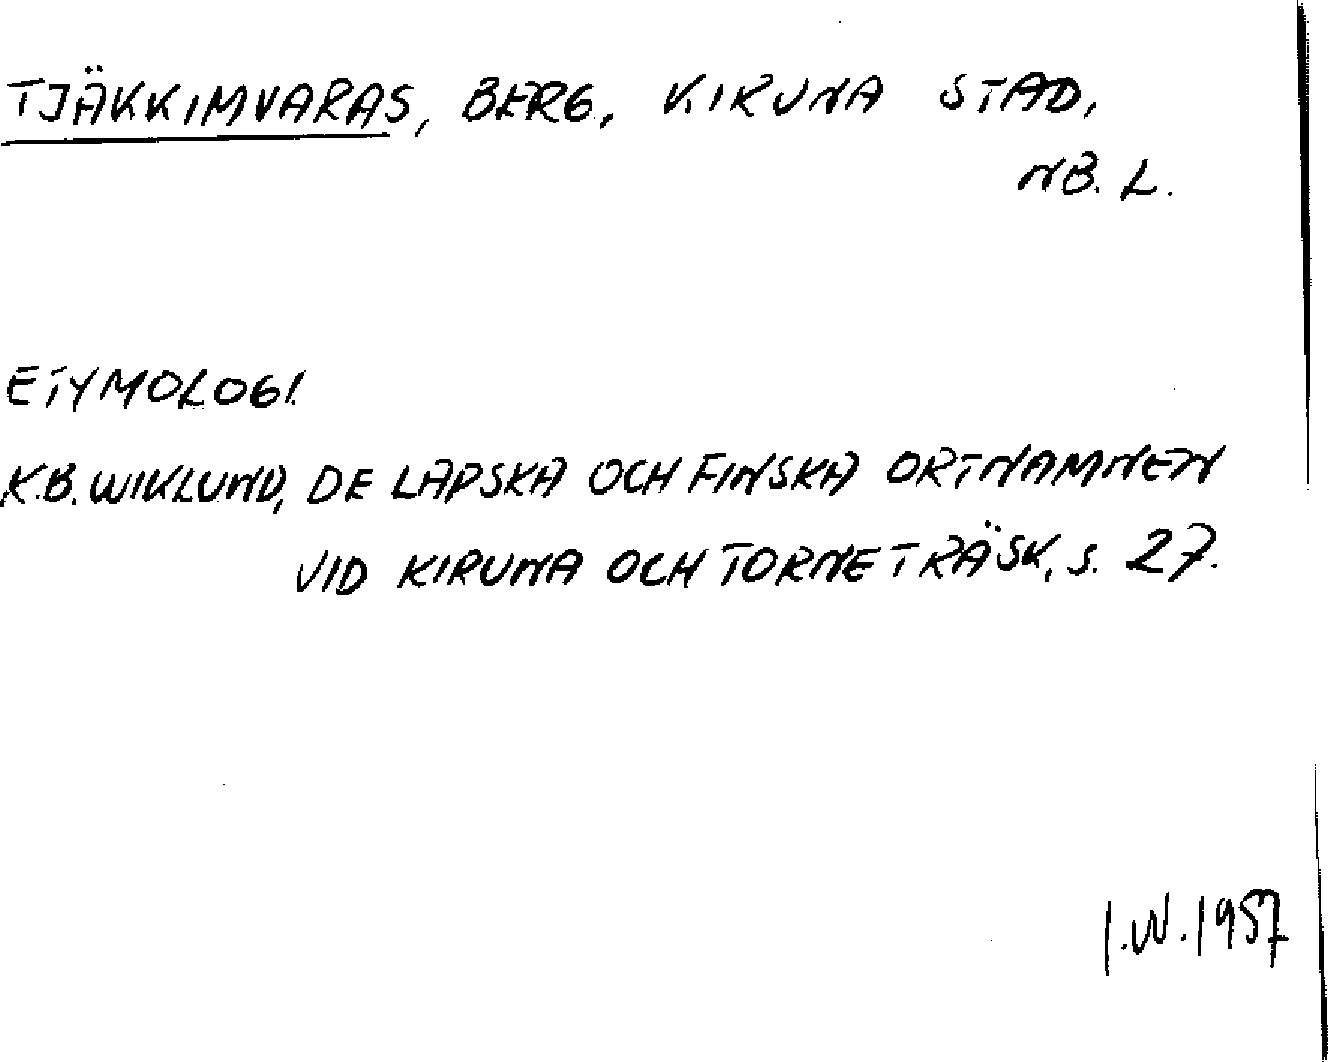 TJÄKKIMVARAS, BERG, KIRUNA STAD,
NB. L.
ETYMOLOGI.
K.B. WIKLUND, DE LAPSKA OCH FINSKA ORTNAMNEN
VID KIRUNA OCH TORNETRÄSK, s. 27.
I.W. 1957